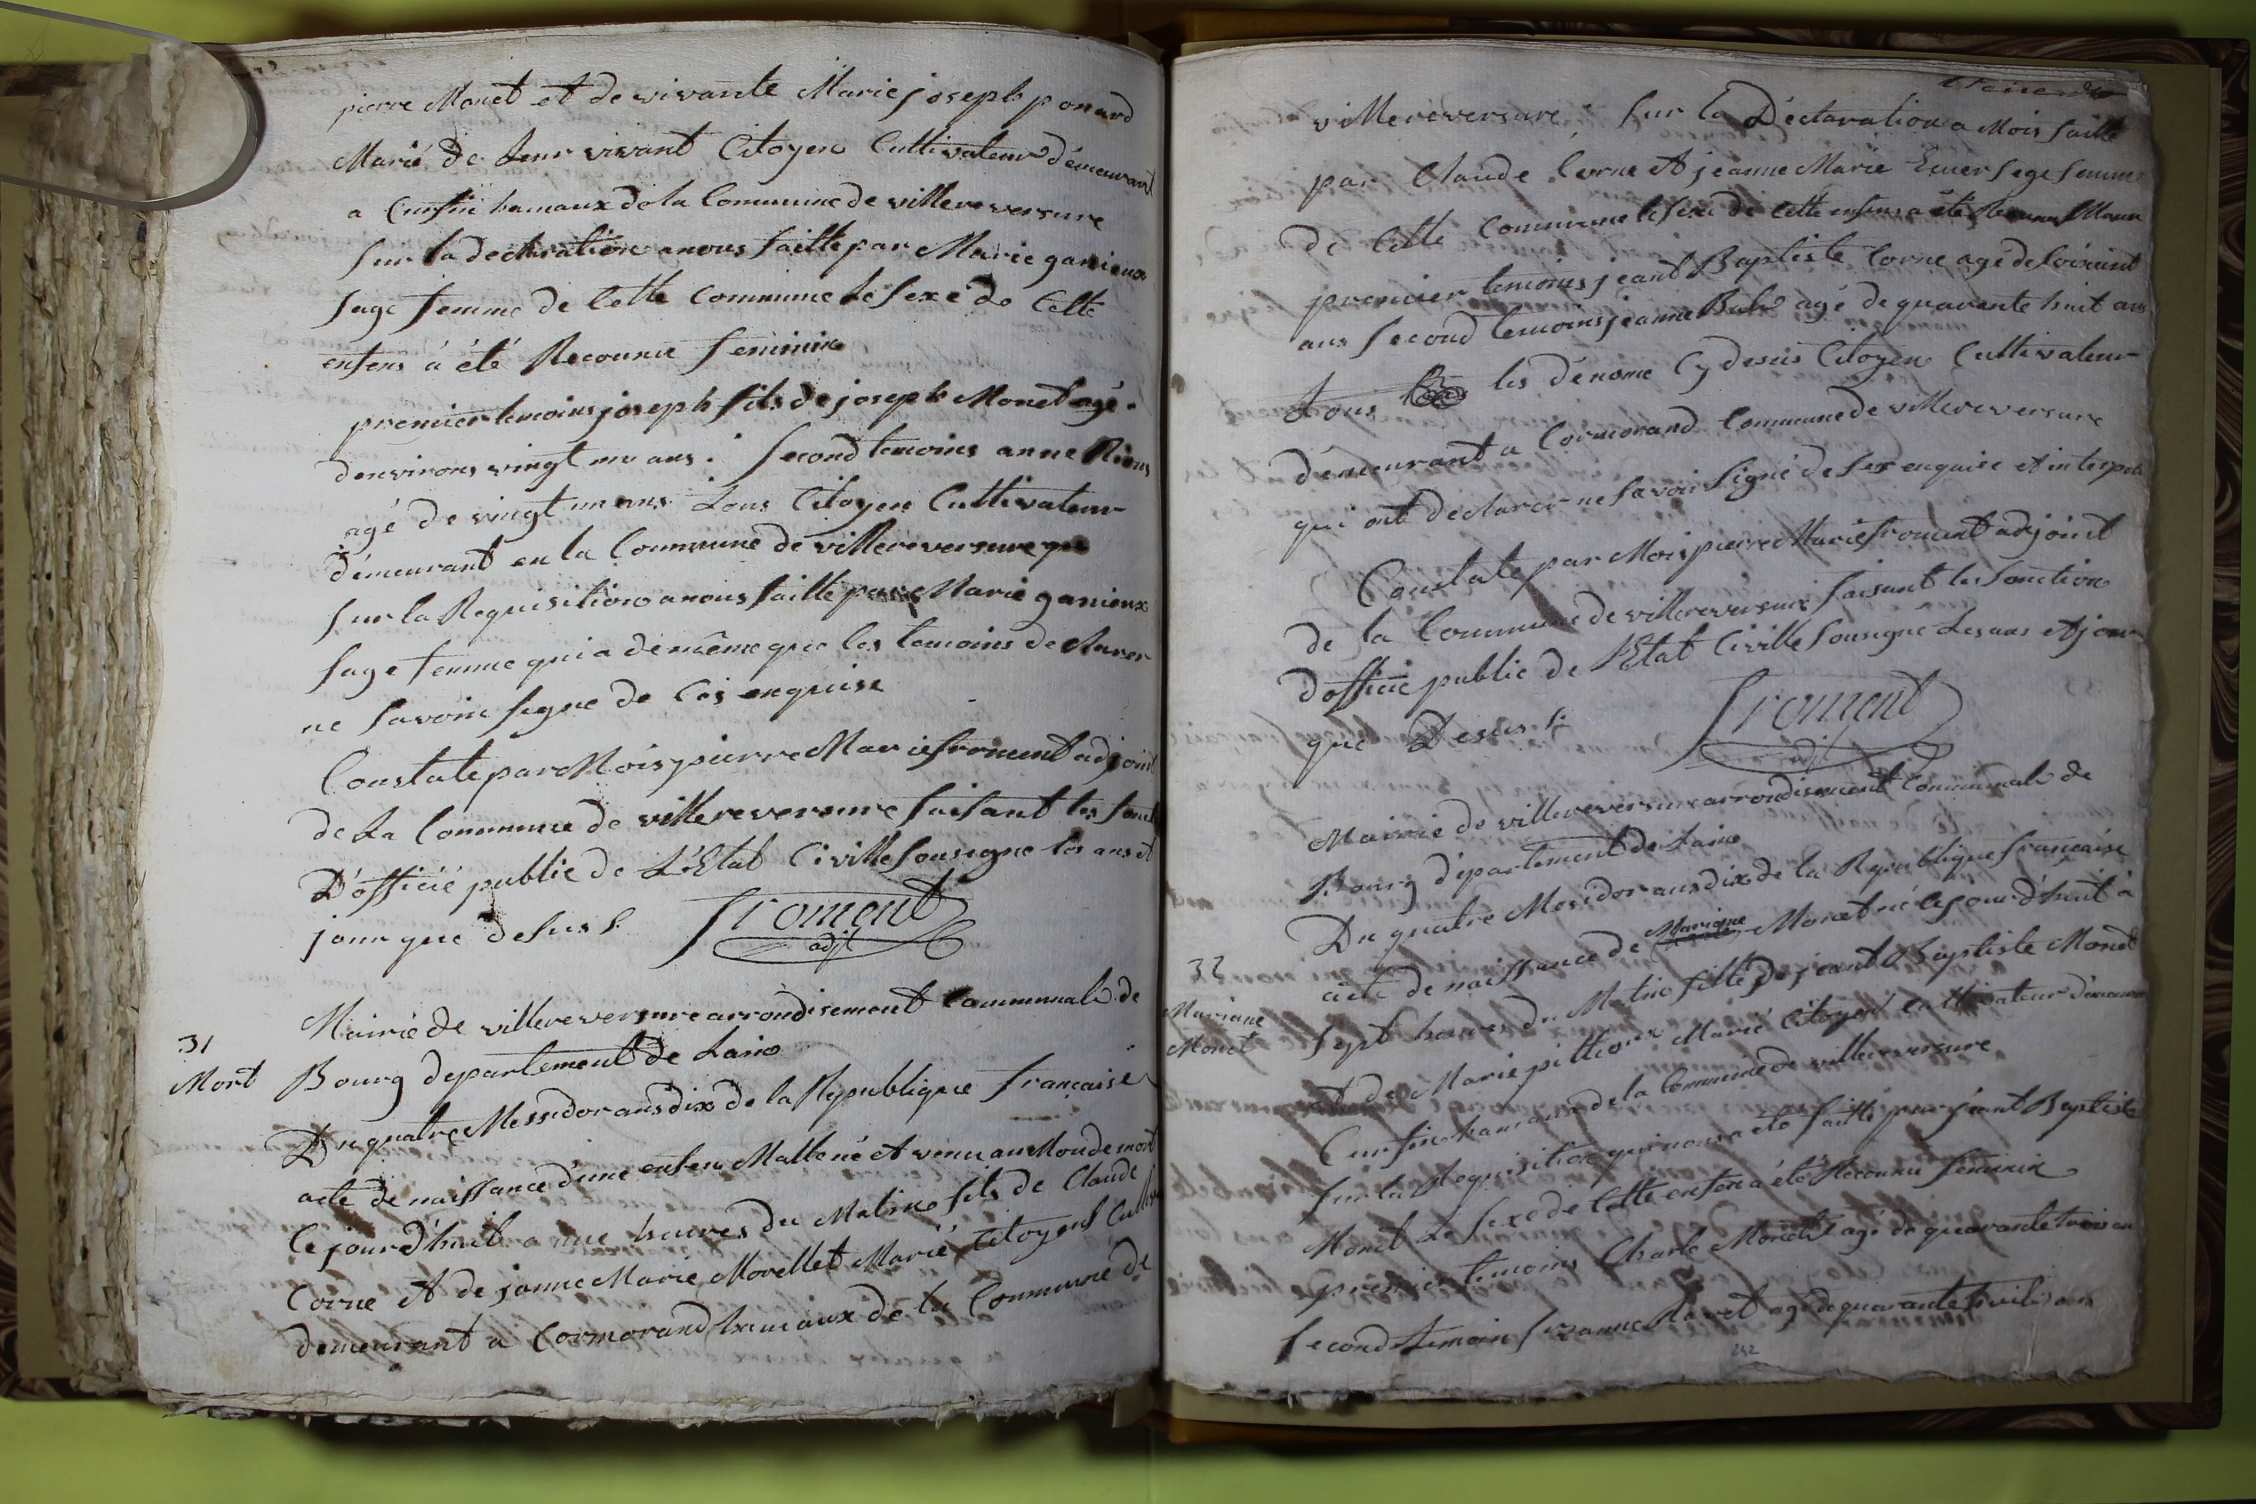 pierre Monet et de vivante Marie joseph ponard
Marié de Leur vivant Citoyen Cultivateur démeurant
a Cunfin hamaux de la Commune de villereversure
sur la declaration a nous faitte par Marie ganieux
sage femme de Cette Commune Le sexe de Cette
enfens à été Reconnu feminin
premier temoins joseph fils de joseph Monet agé
denvirons vingt un ans. second temoins anne
agé de vingt un ans Tous Citoyen Cultivateur
démeurant en la Commune de villereversure
sur la Requisition a nous faitte par Marie ganieux
sage femme qui a de même que les temoins declarer
ne savoir signe de Ces enquise
Constate par Mois pierre Marie froment adjoint
de La Commune de villereversure faisant les fonct
D'officié public de L'Etat Civille sousigne les ans et
jour que desus /.
froment
adjt
31
Mort
Mairie de villereversure arrondisement Communale de
Bourg departement de Lain
Du quatre Messidor ans dix de la Republique française
acte de naissance d'une enfen Malle né et venu au Monde mort
Cejourd'huit a une heures du Matin fils de Claude
Corne et de janne Marie Morellet Marié Citoyens
demeurant a Cormorand hamaux de la Commune de
villereversure sur la Déclaration a Mois faitte
par Claude Corne et jeanne Marie sage femme
de Cette Commune le sexe de Cette enfens a été
premier temoins jeant Baptiste Corne agé de
ans second temoins jeanne agé de quarante huit ans
Tous les dénomé Cy desus Citoyen Cultivateur
démeurant a Cormorand Commune de villereversure
qui ont déclarer ne savoir signé de Ses enquise et interpelé
Constate par Mois pierre Marie froment adjoint
de la Commune de villereversure faisant les fonction
d'officié public de l'Etat Civille sousigné Les ans et jour
que Desus /.
froment
adjt
32
Mariane
Monet
Mairie de villereversure arrondisement Communale de
Bourg département de Lain
Du quatre Mesidor ans dix de la Republique française
acte de naissance de Mariane Monet né Cejourd'huit à
sept heures du Matin fille de jeant Baptiste Monet
et de Marie pillioux Marié Citoyen cultivateur démeurant
Cunfin hamaux de la Commune de villereversure
sur la Requisition qui nous a été faitte par jeant Baptiste
Monet Le sexe de Cette enfen a été Reconnu feminin
premier temoins Charle Monet agé de quarante trois an
second temoin suzanne agé de quarante huit ans
242